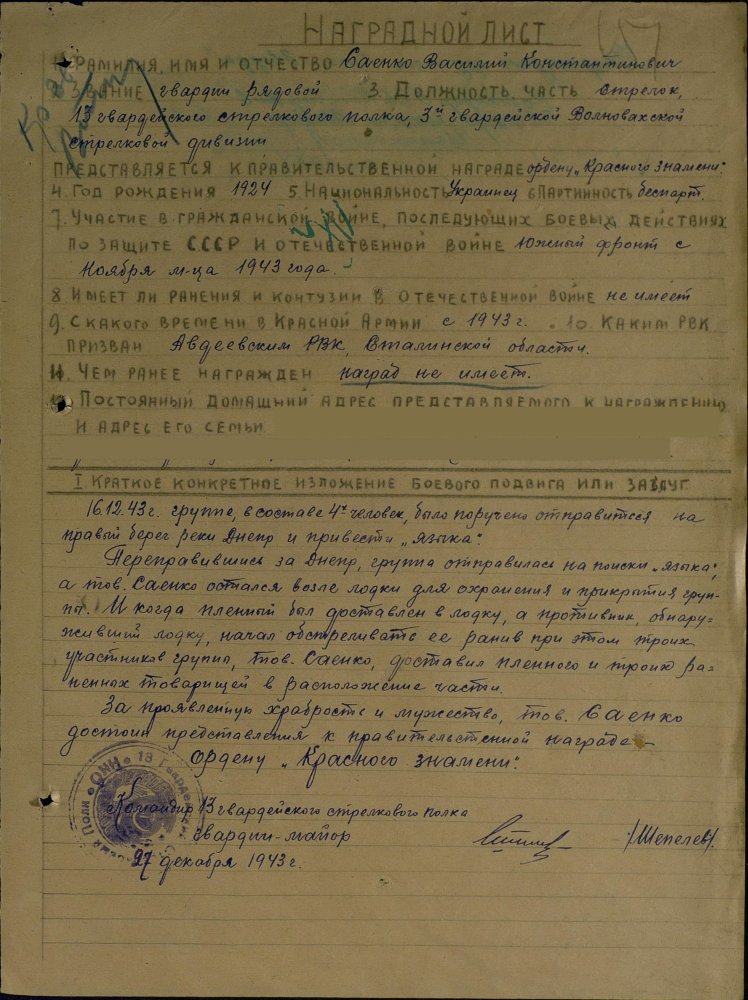 НАГРАДНОЙ ЛИСТ
1. ФАМИЛИЯ, ИМЯ И ОТЧЕСТВО Саенко Василий Константинович
2. ЗВАНИЕ гвардии рядовой 3. ДОЛЖНОСТЬ, ЧАСТЬ стрелок,
13 гвардейского стрелкового полка, 3й гвардейской Волновахской
стрелковой дивизии
ПРЕДСТАВЛЯЕТСЯ К ПРАВИТЕЛЬСТВЕННОЙ НАГРАДЕ ордену „Красного знамени".
4. ГОД РОЖДЕНИЯ 1924 5. НАЦИОНАЛЬНОСТЬ Украинец 6 ПАРТИЙНОСТЬ беспарт.
7. УЧАСТИЕ В ГРАЖДАНСКОЙ ВОЙНЕ, ПОСЛЕДУЮЩИХ БОЕВЫХ ДЕЙСТВИЯХ
ПО ЗАЩИТЕ СССР И ОТЕЧЕСТВЕННОЙ ВОЙНЕ Южный фронт с
Ноября м-ца 1943 года.
8. ИМЕЕТ ЛИ РАНЕНИЯ И КОНТУЗИИ В ОТЕЧЕСТВЕННОЙ ВОЙНЕ не имеет
9. С КАКОГО ВРЕМЕНИ В КРАСНОЙ АРМИИ с 1943 г. 10. КАКИМ РВК
ПРИЗВАН Авдеевским РВК, Сталинской области.
11. ЧЕМ РАНЕЕ НАГРАЖДЕН наград не имеет.
12. ПОСТОЯННЫЙ ДОМАШНИЙ АДРЕС ПРЕДСТАВЛЯЕМОГО К НАГРАЖДЕНИЮ
И АДРЕС ЕГО СЕМЬИ
I КРАТКОЕ КОНКРЕТНОЕ ИЗЛОЖЕНИЕ БОЕВОГО ПОДВИГА ИЛИ ЗАСЛУГ
16.12.43 г. группе, в составе 4х человек, было поручено отправится на
правый берег реки Днепр и привести „языка".
Переправившись за Днепр, группа отправилась на поиски „языка",
а тов. Саенко остался возле лодки для охранения и прикрытия груп-
пы. И когда пленный был доставлен в лодку, а противник, обнару-
живший лодку, начал обстреливать ее ранив при этом троих
участников группы, тов. Саенко, доставил пленного и троих ра-
ненных товарищей в расположение части.
За проявленную храбрость и мужество, тов. Саенко
достоин представления к правительственной награде —
Ордену „Красного знамени".
Командир 13 гвардейского стрелкового полка
гвардии-майор /Шепелев/
27 декабря 1943 г.